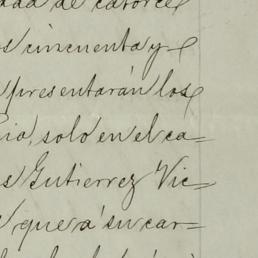 dad de catorce
os cincuenta y
presentarán los
cia, solo en el ca-
s Gutierrez Vic-
que á su car-